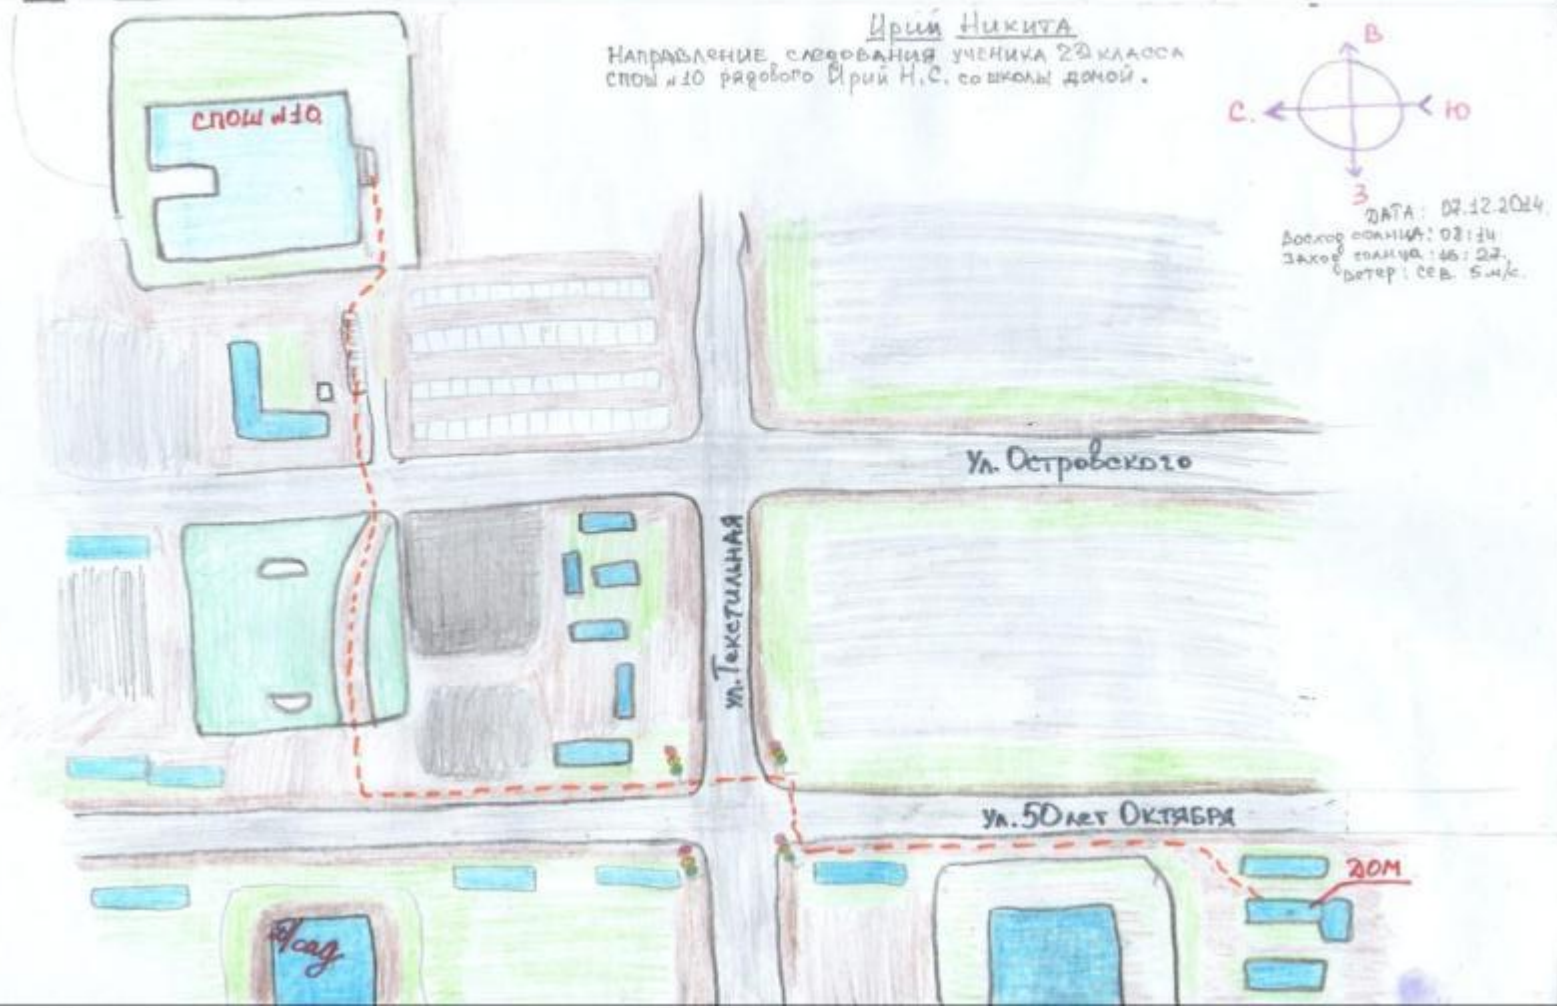 Ирий Никита
Направление следования ученика 2Э класса
СПОШ №10 рядового Ирий Н.С. со школы домой.
В
С.
Ю
З
ДАТА: 07.12.2014.
Восход солнца: 08:14
Заход солнца: 16:27.
Ветер: сев. 5 м/с.
СПОШ №10
ул. Островского
ул. Текстильная
ул. 50 лет Октября
ДОМ
д/сад